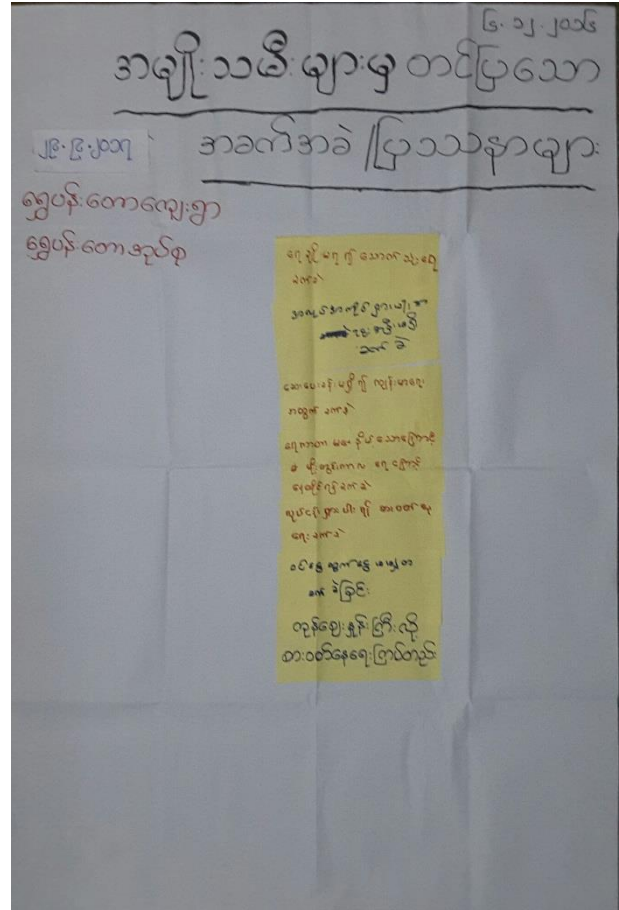 ၆.၁၂.၂၀၁၆
အမျိုးသမီးများမှ တင်ပြသော
အခက်အခဲ/ပြဿနာများ
၂၄.၄.၂၀၁၇
ရွှေပန်းတောကျေးရွာ
ရွှေပန်းတောအုပ်စု
ရေချို မရ၍ သောက်သုံးရေ
ခက်ခဲ
အလုပ်အကိုင် ရှားပါး
ခက်ခဲ
ဆေးပေးခန်းမရှိ၍ ကျန်းမာရေး
အတွက် ခက်ခဲ
ရေကာတာ မ သောကြောင့်
မိုးတွင်းကာလ ရေကြောင့်
နေထိုင်ရန်ခက်ခဲ
လုပ်ငန်းရှားပါး၍ စားဝတ်နေ
ရေးခက်ခဲ
ဝင်ငွေ ထွက်ငွေ မမျှတ
ခက်ခဲခြင်း
ကုန်ဈေးနှုန်းကြီးလို့
စားဝတ်နေရေးကြပ်တည်း